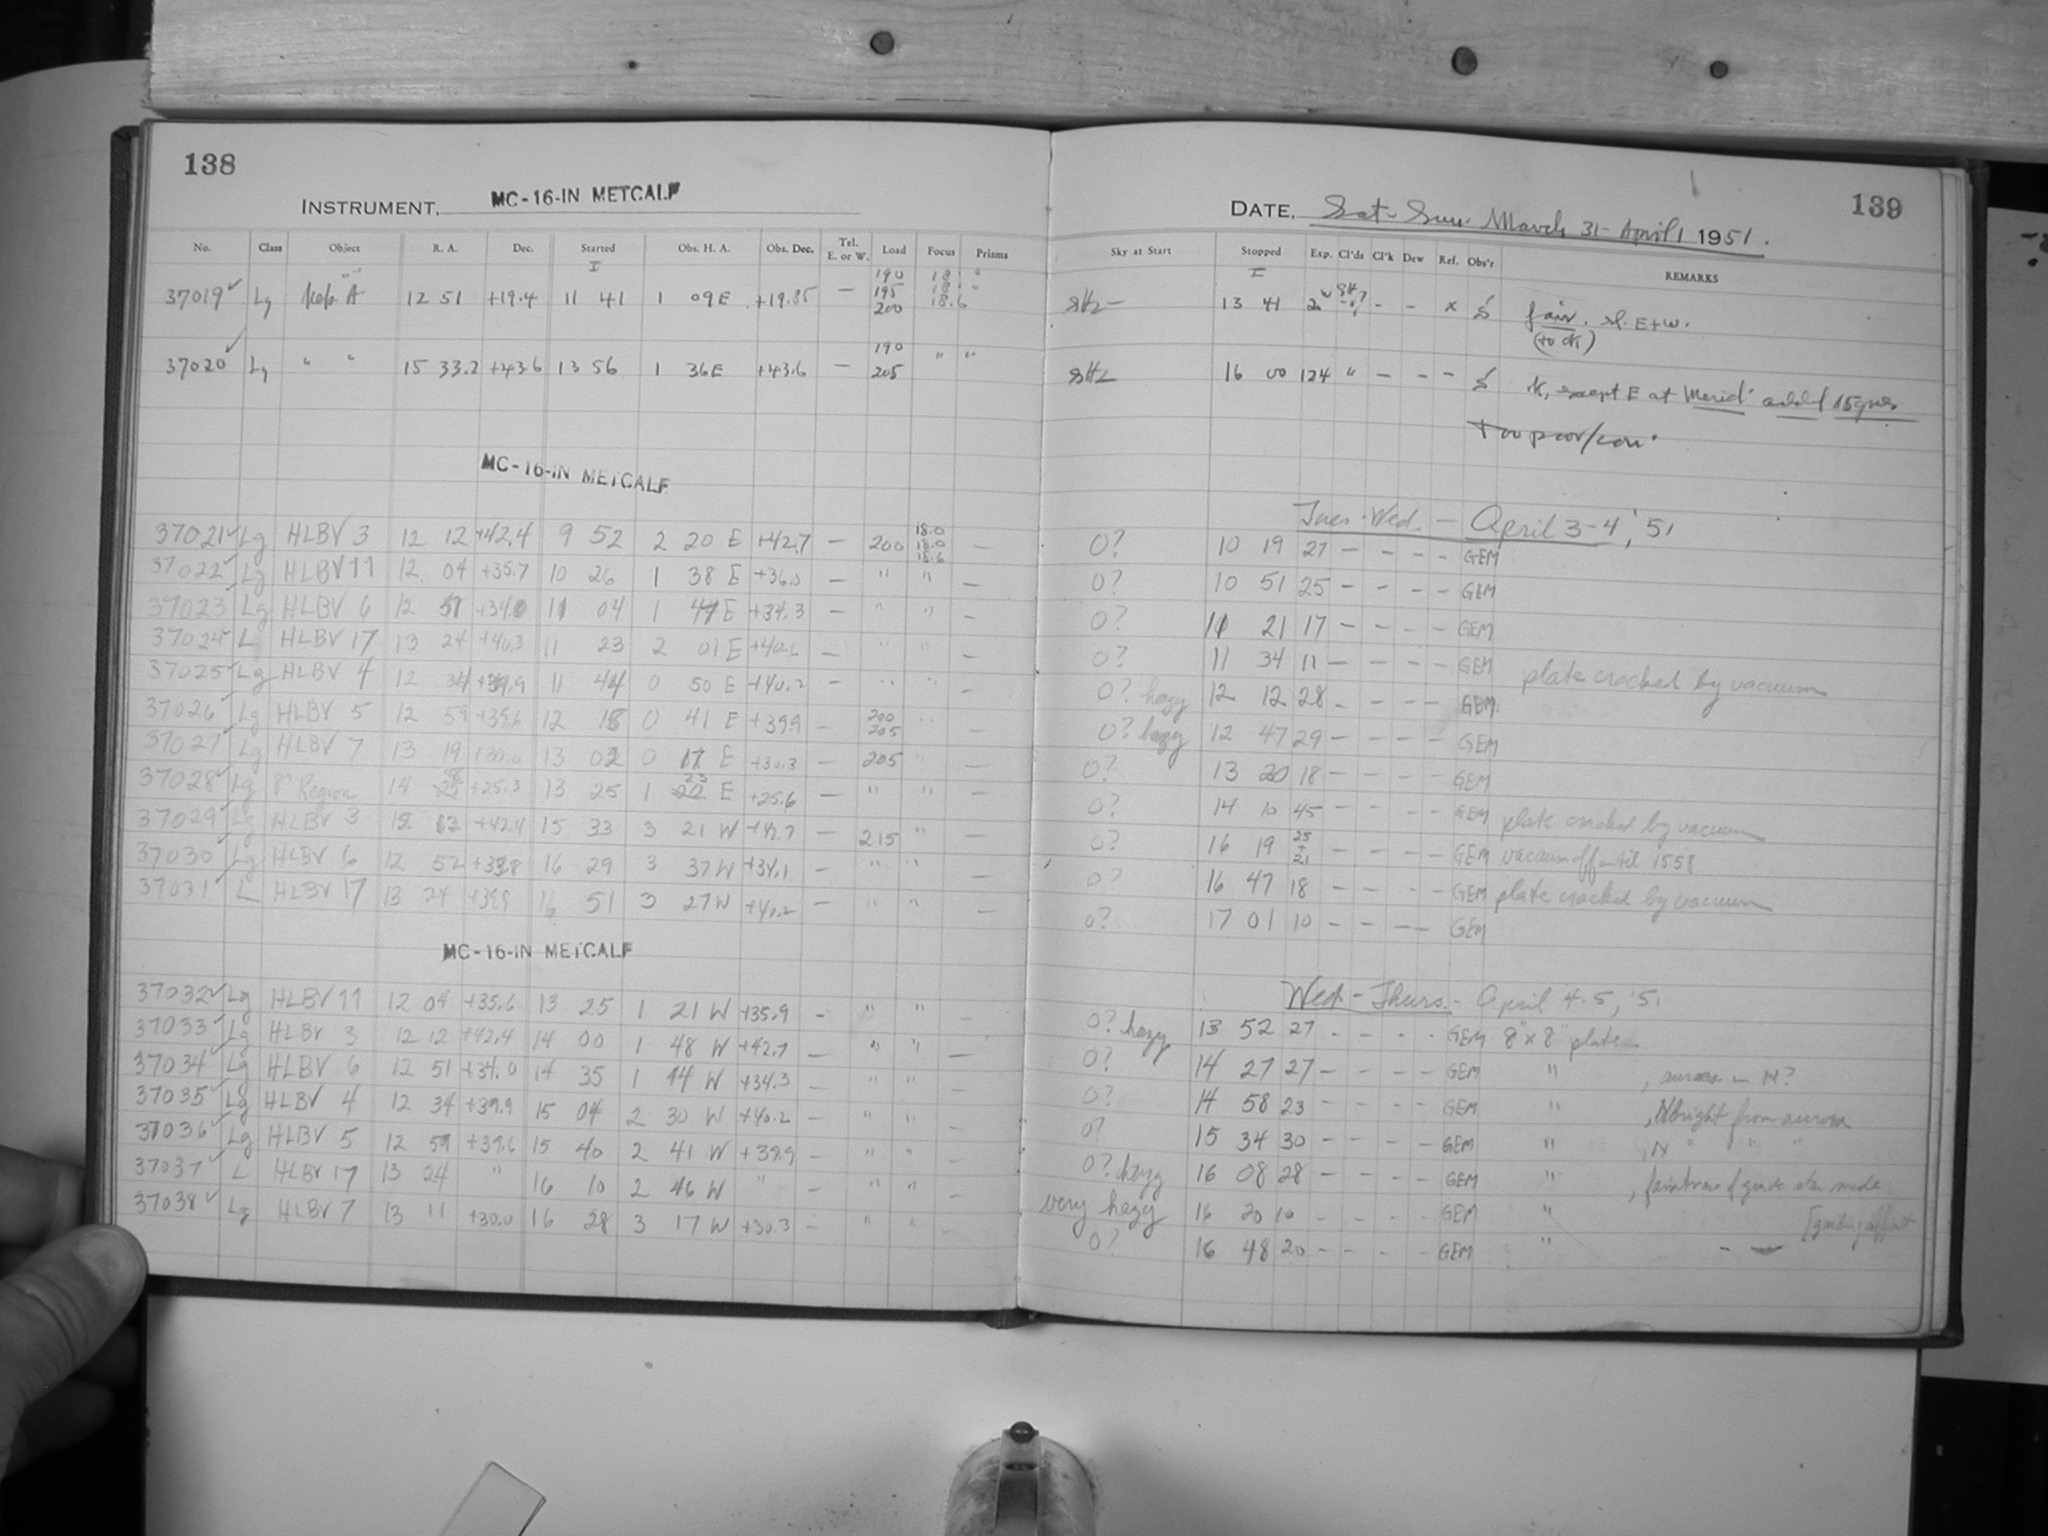 138
INSTRUMENT, MC-16-IN METCALF
No. Class Object R. A. Dec. Started Obs. H. A. Obs. Dec. Tel. E. or W. Load Focus Prisms
190 18.
37019 Lg A 12 51 +19.4 11 41 1 09E +19.35 — 195 18.
200 18.6
190
37020 Lg " " 15 33.2 +43.6 13 56 1 36E +43.6 — 205 " "
MC-16-IN METCALF
37021 Lg HLBV 3 12 12 +42.4 9 52 2 20 E +42.7 — 200 18.0 18.0 18.6 —
37022 Lg HLBV 11 12 04 +35.7 10 26 1 38 E +36.0 — " " —
37023 Lg HLBV 6 12 51 +34.0 11 04 1 47 E +34.3 — " " —
37024 L HLBV 17 13 24 +40.3 11 23 2 01 E +40.6 — " " —
37025 Lg HLBV 4 12 34 +39.9 11 44 0 50 E +40.2 — " " —
37026 Lg HLBV 5 12 59 +39.6 12 18 0 41 E +39.9 — 200 205 " —
37027 Lg HLBV 7 13 19 +30.0 13 02 0 17 E +30.3 — 205 " —
37028 Lg 8" Region 14 +25.3 13 25 1 23 E +25.6 — " " —
37029 Lg HLBV 3 12 12 +42.4 15 33 3 21 W +42.7 — 215 " —
37030 Lg HLBV 6 12 52 +33.8 16 29 3 37 W +34.1 — " " —
37031 L HLBV 17 13 24 +39.9 16 51 3 27 W +40.2 — " " —
MC-16-IN METCALF
37032 Lg HLBV 11 12 04 +35.6 13 25 1 21 W +35.9 - " " —
37033 Lg HLBV 3 12 12 +42.4 14 00 1 48 W +42.7 — " " —
37034 Lg HLBV 6 12 51 +34.0 14 35 1 44 W +34.3 — " " —
37035 Lg HLBV 4 12 34 +39.9 15 04 2 30 W +40.2 — " " —
37036 Lg HLBV 5 12 59 +39.6 15 40 2 41 W +39.9 — " " —
37037 L HLBV 17 13 24 " 16 10 2 46 W " — " " —
37038 Lg HLBV 7 13 11 +30.0 16 28 3 17 W +30.3 — " " —
139
DATE, Sat-Sun. March 31-April 1 1951.
Sky at Start Stopped Exp. Cl'ds Cl'k Dew Ref. Obs'r REMARKS
13 41 - - x fair. sl. E+W.
(to ok)
16 00 124 " - - - ok, except E at Merid. added 15
Too poor/
Tues-Wed. — April 3-4, '51
0? 10 19 27 - - - - GEM
0? 10 51 25 - - - - GEM
0? 11 21 17 - - - - GEM
0? 11 34 11 - - - - GEM plate cracked by vacuum
0? hazy 12 12 28 - - - - GEM
0? hazy 12 47 29 - - - - GEM
0? 13 20 18 - - - - GEM
0? 14 10 45 - - - - GEM plate cracked by vacuum
0? 16 19 25 + 21 - - - - GEM vacuum off until 1558
0? 16 47 18 - - - - GEM plate cracked by vacuum
0? 17 01 10 - - - - GEM
Wed. - Thurs. - April 4-5, '51
0? hazy 13 52 27 - - - - GEM 8" x 8" plate
0? 14 27 27 - - - - GEM " , aurora in N?
0? 14 58 23 - - - - GEM " , N bright from aurora
0? 15 34 30 - - - - GEM " , N " " "
0? hazy 16 08 28 - - - - GEM " , faintness of guide star made
very hazy 16 20 10 - - - - GEM " [guiding difficult
0? 16 48 20 - - - - GEM " - —